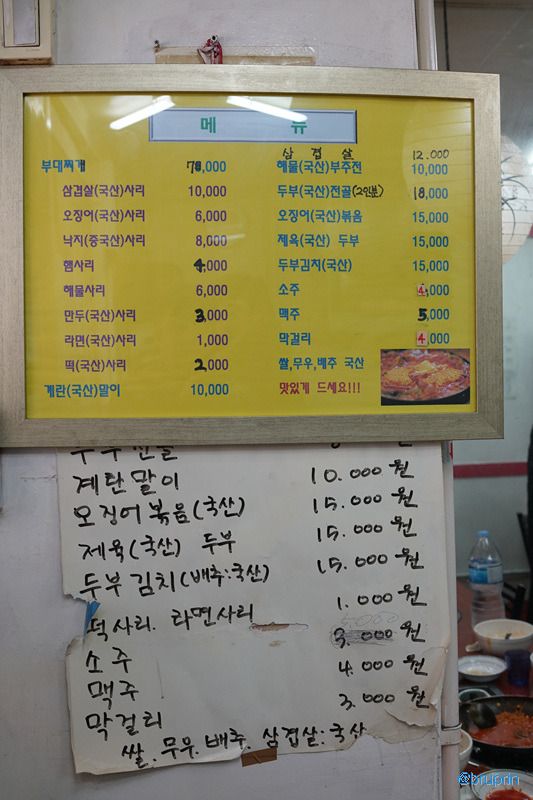 메 뉴
부대찌개 78,000
삼겹살(국산)사리 10,000
오징어(국산)사리 6,000
낙지(중국산)사리 8,000
햄사리 4,000
해물사리 6,000
만두(국산)사리 3,000
라면(국산)사리 1,000
떡(국산)사리 2,000
계란(국산)말이 10,000
삼겹살 12.000
해물(국산)부추전 10,000
두부(국산)전골(2인분) 18,000
오징어(국산)볶음 15,000
제육(국산) 두부 15,000
두부김치(국산) 15,000
소주 4,000
맥주 5,000
막걸리 4,000
쌀,무우,배추 국산
맛있게 드세요!!!
계란말이 10.000원
오징어볶음(국산) 15.000원
제육(국산) 두부 15.000원
두부김치(배추:국산) 15.000원
떡사리. 라면사리 1.000원
소주 3.000원
맥주 4.000원
막걸리 3.000원
쌀.무우.배추.삼겹살.국산
@bruprin